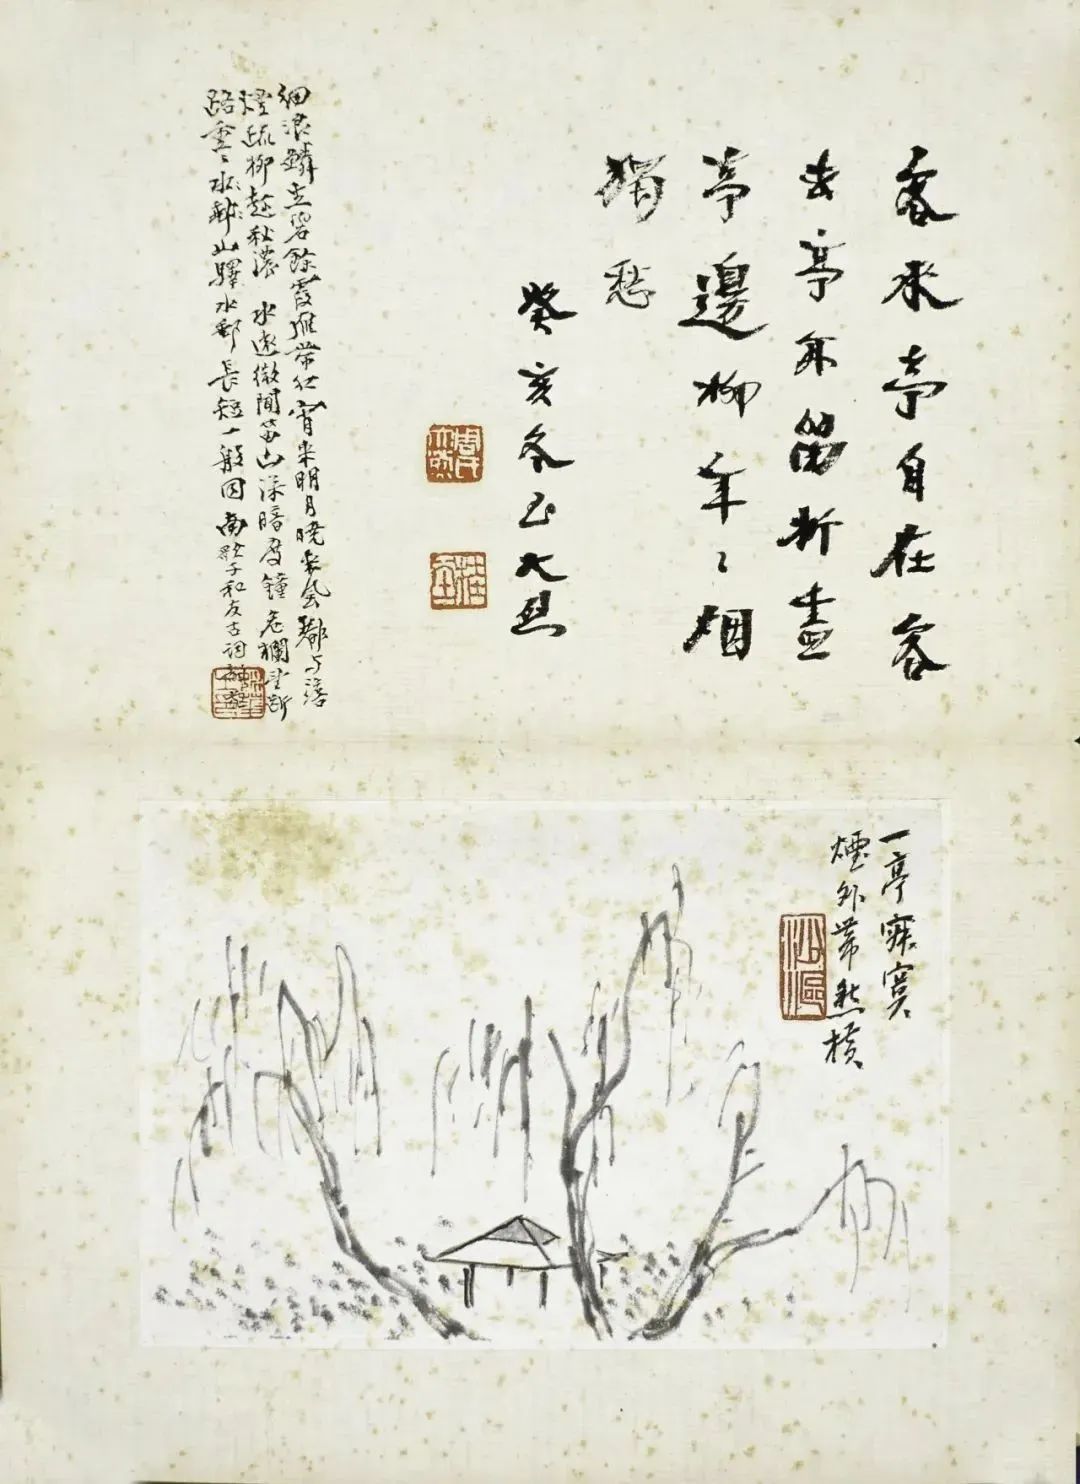 客來亭自在客
去亭留折盡
亭邊柳年々烟
獨愁
癸亥冬至大烈
細浪鱗生碧餘霞雁帶紅宵來明月曉來風都与澹
煙疏柳趁秋濃水遠微聞笛山深暗度鐘危欄望斷
路重々水郵山驛水郵長短一般同南歌子和友古詞
一亭寂寞
煙外帶愁橫